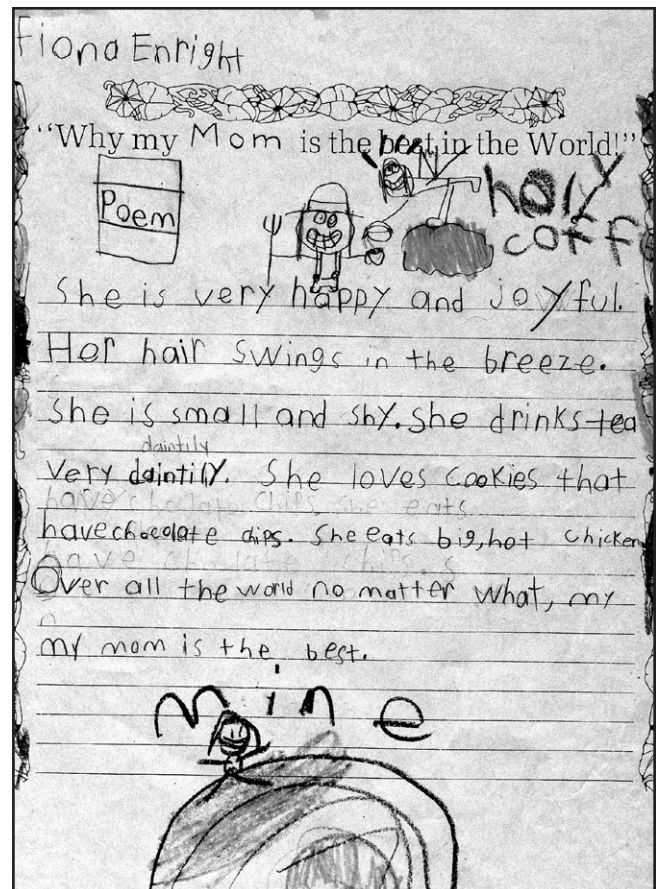 Fiona Enright
"Why my Mom is the best in the World!"
Poem
holy
coff
She is very happy and joyful.
Her hair swings in the breeze.
She is small and shy. She drinks tea
daintily
very daintily. She loves cookies that
have chocolate chips. She eats
have chocolate chips. She eats big, hot chicken
have chocolate chips. s
Over all the world no matter what, my
my mom is the best.
mine